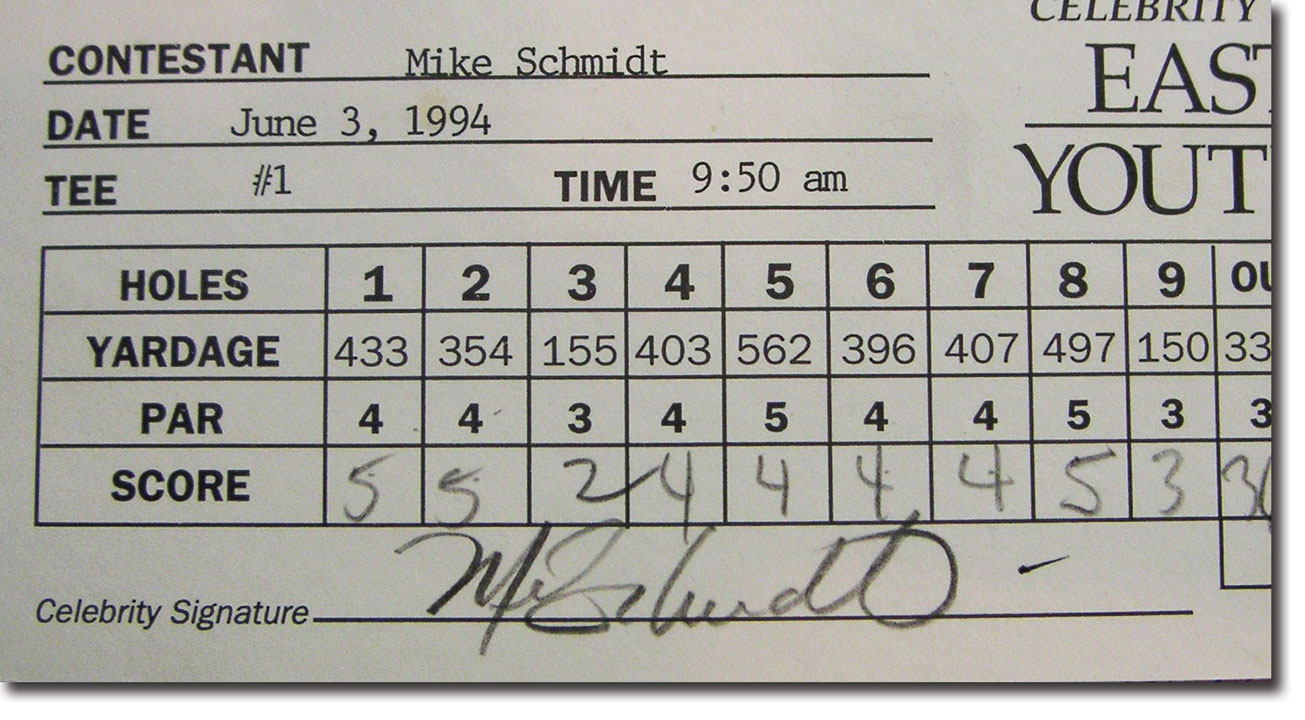 CELEBRITY
CONTESTANT Mike Schmidt
EAST
DATE June 3, 1994
YOUT
TEE #1 TIME 9:50 am
HOLES 1 2 3 4 5 6 7 8 9 OU
YARDAGE 433 354 155 403 562 396 407 497 150 33
PAR 4 4 3 4 5 4 4 5 3 3
SCORE 5 5 2 4 4 4 4 5 3 36
Celebrity Signature Mike Schmidt